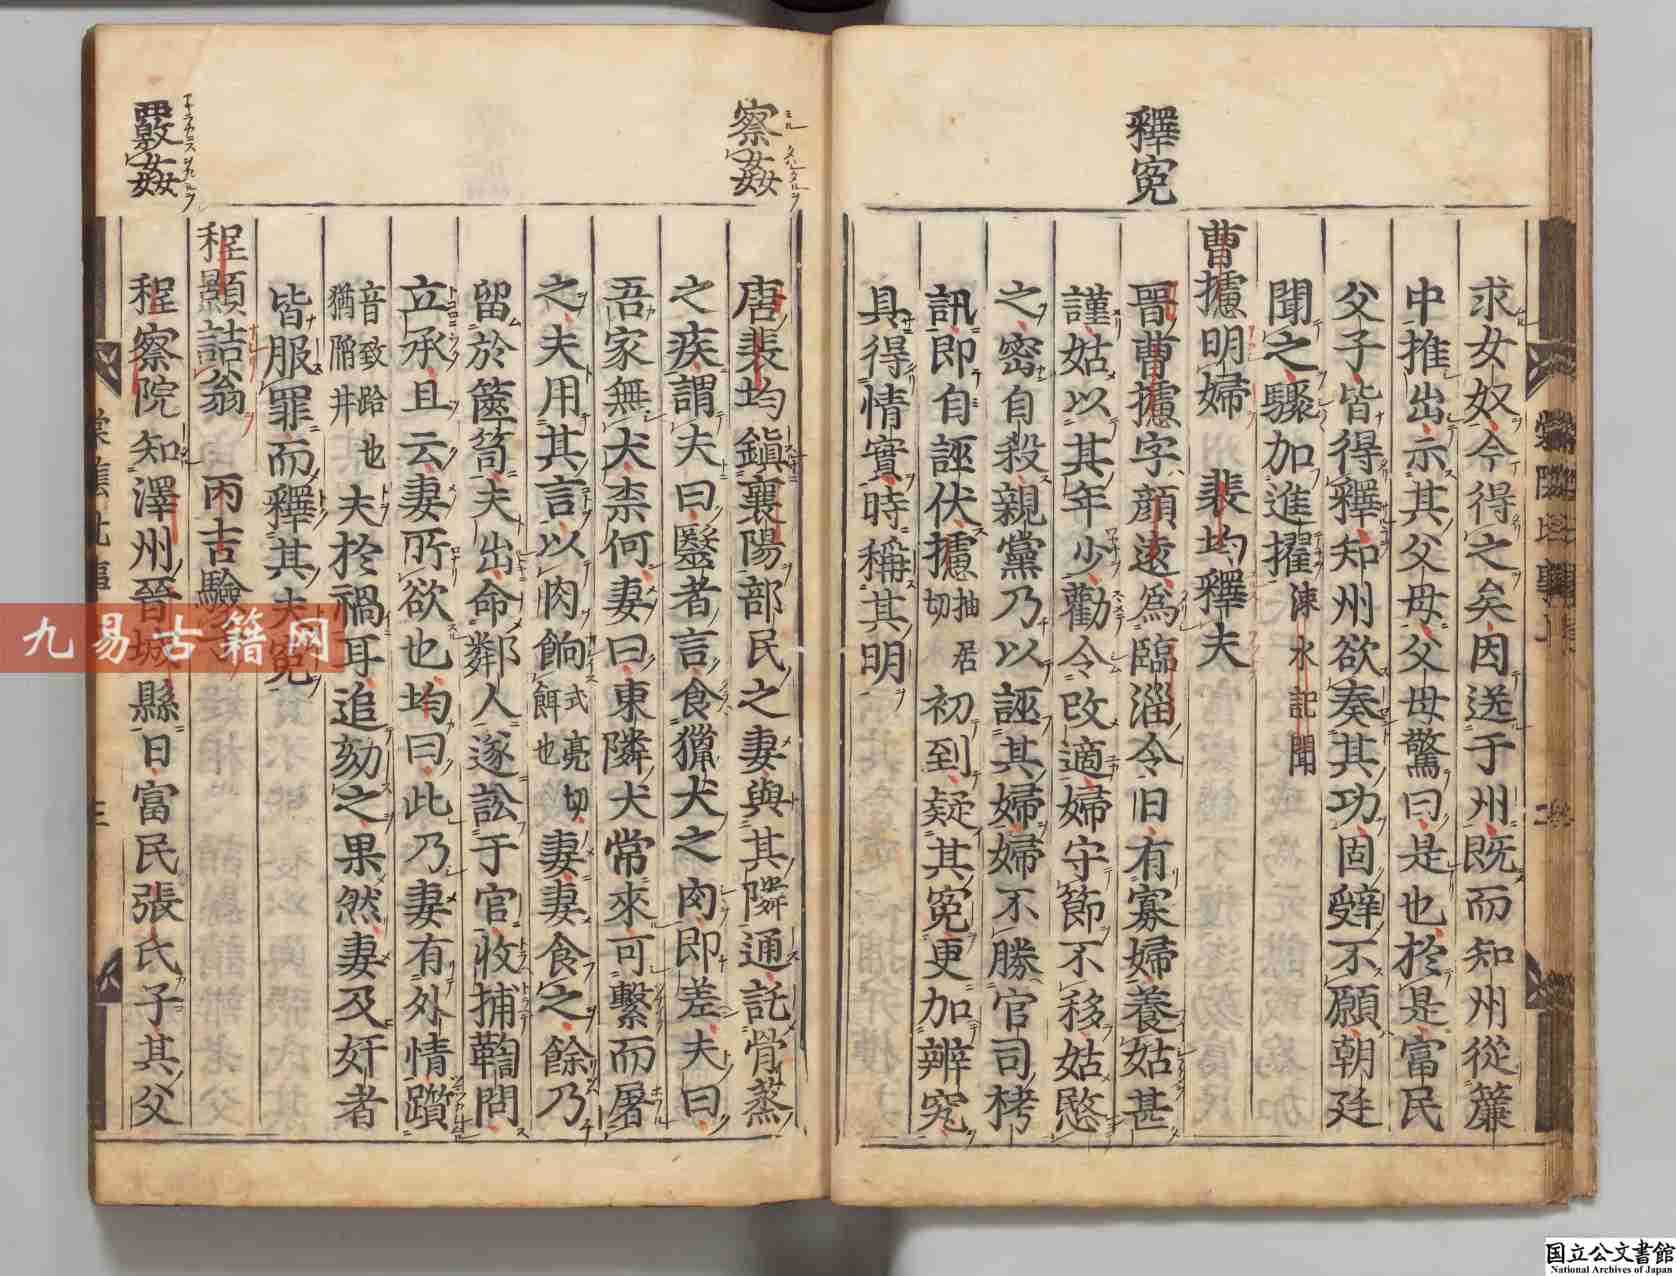 釋寃
求女奴今得之矣因送于州既而知州從簾
中推出示其父母父母驚曰是也於是富民
父子皆得釋知州欲奏其功固辤不願朝廷
聞之驟加進擢涑水記聞
曹攄明婦 裴均釋夫
晉曹攄字顔逺爲臨淄令旧有寡婦養姑甚
謹姑以其年少勸令改適婦守節不移姑愍
之密自殺親黨乃以誣其婦婦不勝官司栲
訊即自誣伏攄抽居切初到疑其寃更加辨究
具得情實時稱其明
察姦
覈姦
唐裴均鎭襄陽部民之妻與其隣通託骨蒸
之疾謂夫曰醫者言食獵犬之肉即差夫曰
吾家無犬柰何妻曰東隣犬常來可繫而屠
之夫用其言以肉餉式亮切餌也妻妻食之餘乃
留於篋笥夫出命鄰人遂訟于官收捕鞫問
立承且云妻所欲也均曰此乃妻有外情躓
音致跲也猶陷井夫於禍耳追劾之果然妻及奸者
皆服罪而釋其夫寃
程顥詰翁 丙吉驗子
程察院知澤州晉城縣日富民張氏子其父
三
九易古籍网
国立公文書館
National Archives of Japan